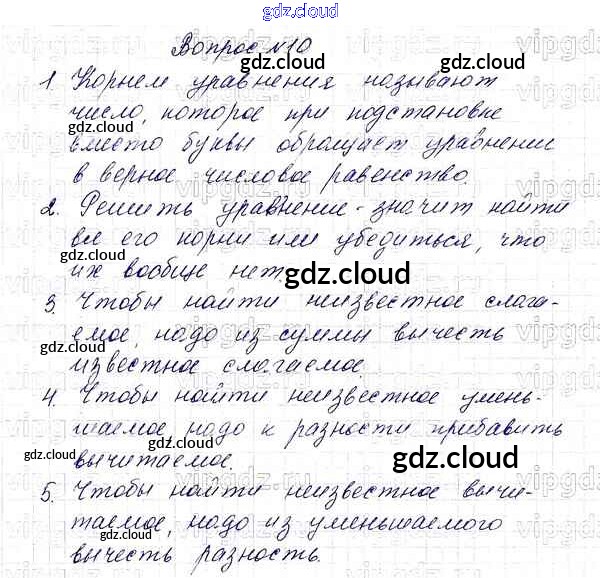 gdz.cloud
Вопрос №10
1. Корнем уравнения называют
число, которое при подстановке
вместо буквы обращает уравнении
в верное числовое равенство.
2. Решить уравнение - значит найти
все его корни или убедиться, что
их вообще нет.
3. Чтобы найти неизвестное слага-
емое, надо из суммы вычесть
известное слагаемое.
4. Чтобы найти неизвестное умень-
шаемое, надо к разности прибавить
вычитаемое.
5. Чтобы найти неизвестное вычи-
таемое, надо из уменьшаемого
вычесть разность.